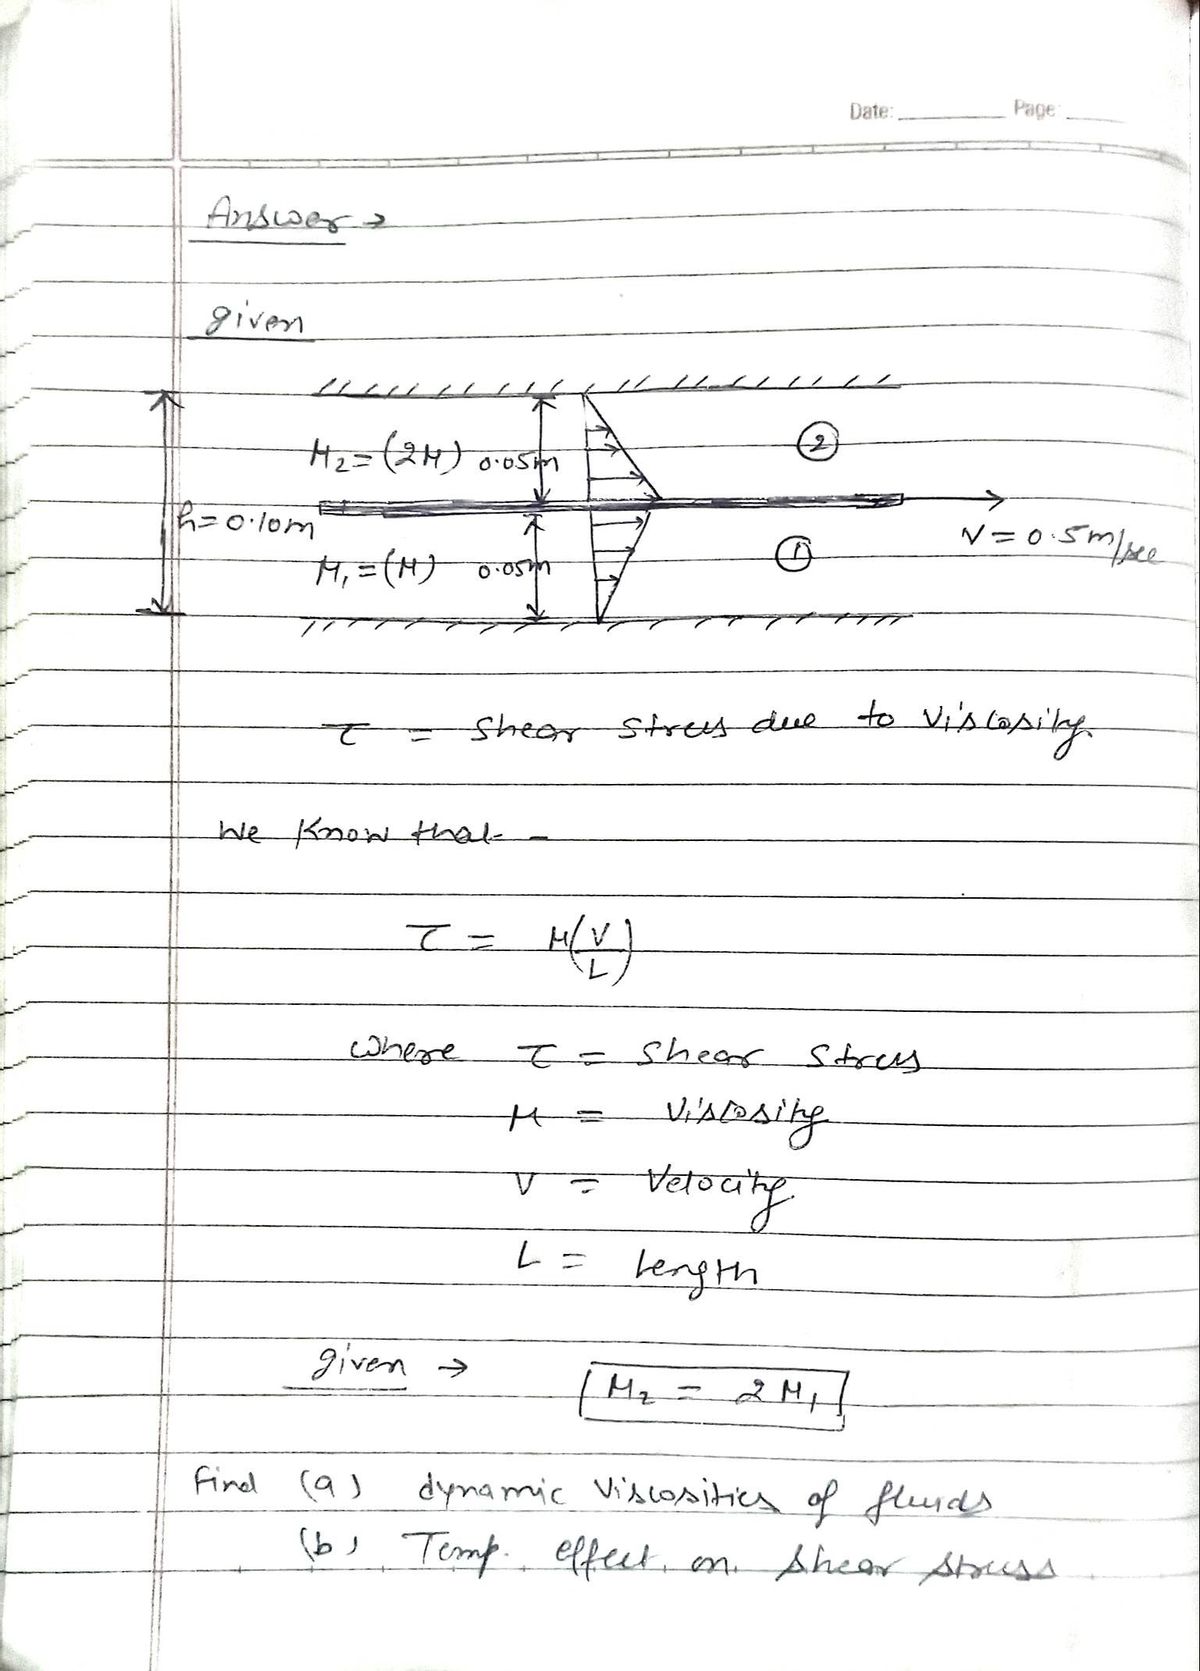 Date: Page
Answer →
given
μ₂ = (2μ) 0.05m ②
h = 0.10m
V = 0.5 m/sec
μ₁ = (μ) 0.05m ①
τ = Shear Stress due to Viscosity.
We Know that -
τ = μ(V/L)
where τ = Shear Stress
μ = Viscosity
V = Velocity.
L = Length
given → μ₂ = 2μ₁
Find (a) dynamic Viscosities of fluids
(b) Temp. effect on Shear Stress